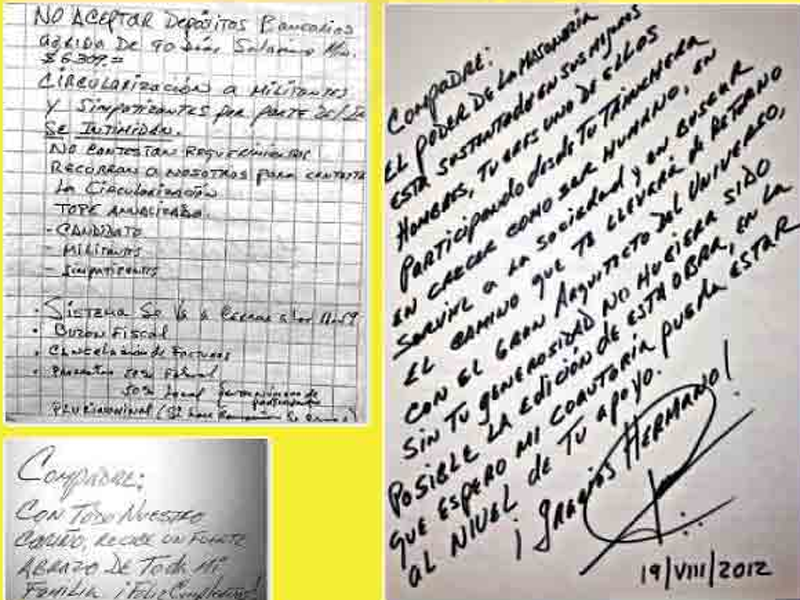 NO ACEPTAR DEPÓSITOS BANCARIOS
DE 90 DÍAS SALARIO MIN.
$6,309.=
CIRCULARIZACIÓN A MILITANTES
Y SIMPATIZANTES POR PARTE DE
SE INTIMIDAN.
NO CONTESTAN REQUERIMIENTOS
RECURRAN A NOSOTROS PARA
LA CIRCULARIZACIÓN
TOPE ANUALIZADO.
- CANDIDATO
- MILITANTES
- SIMPATIZANTES
• SISTEMA SE VA A CERRAR
• BUZON FISCAL
• CANCELACIÓN DE FACTURAS
• 50%
50% LOCAL
PLURINOMINAL
COMPADRE:
CON TODO NUESTRO
CARIÑO, RECIBE UN FUERTE
ABRAZO DE TODA MI
FAMILIA ¡FELIZ CUMPLEAÑOS!
COMPADRE:
EL PODER DE LA MASONERÍA
ESTA SUSTENTADO EN SUS MEJORES
HOMBRES, TU ERES UNO DE ELLOS
PARTICIPANDO DESDE TU TRINCHERA
EN CRECER COMO SER HUMANO, EN
SERVIR A LA SOCIEDAD Y EN BUSCAR
EL CAMINO QUE TE LLEVARÁ DE RETORNO
CON EL GRAN ARQUITECTO DEL UNIVERSO,
SIN TU GENEROSIDAD NO HUBIERA SIDO
POSIBLE LA EDICIÓN DE ESTA OBRA, EN LA
QUE ESPERO MI COAUTORÍA PUEDA ESTAR
AL NIVEL DE TU APOYO.
¡GRACIAS HERMANO!
19/VIII/2012